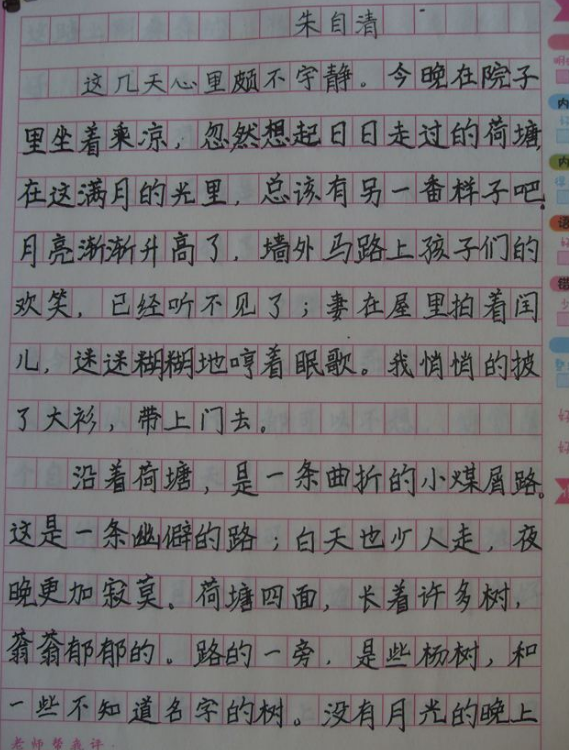 朱自清
这几天心里颇不宁静。今晚在院子
里坐着乘凉,忽然想起日日走过的荷塘,
在这满月的光里,总该有另一番样子吧。
月亮渐渐升高了,墙外马路上孩子们的
欢笑,已经听不见了;妻在屋里拍着闰
儿,迷迷糊糊地哼着眠歌。我悄悄的披
了大衫,带上门去。
沿着荷塘,是一条曲折的小煤屑路。
这是一条幽僻的路;白天也少人走,夜
晚更加寂莫。荷塘四面,长着许多树,
蓊蓊郁郁的。路的一旁,是些杨树,和
一些不知道名字的树。没有月光的晚上